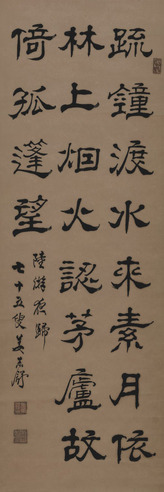 疏鐘渡水來素月依
林上烟火認茅廬故
倚孤蓬望
陸游夜歸
七十五叟